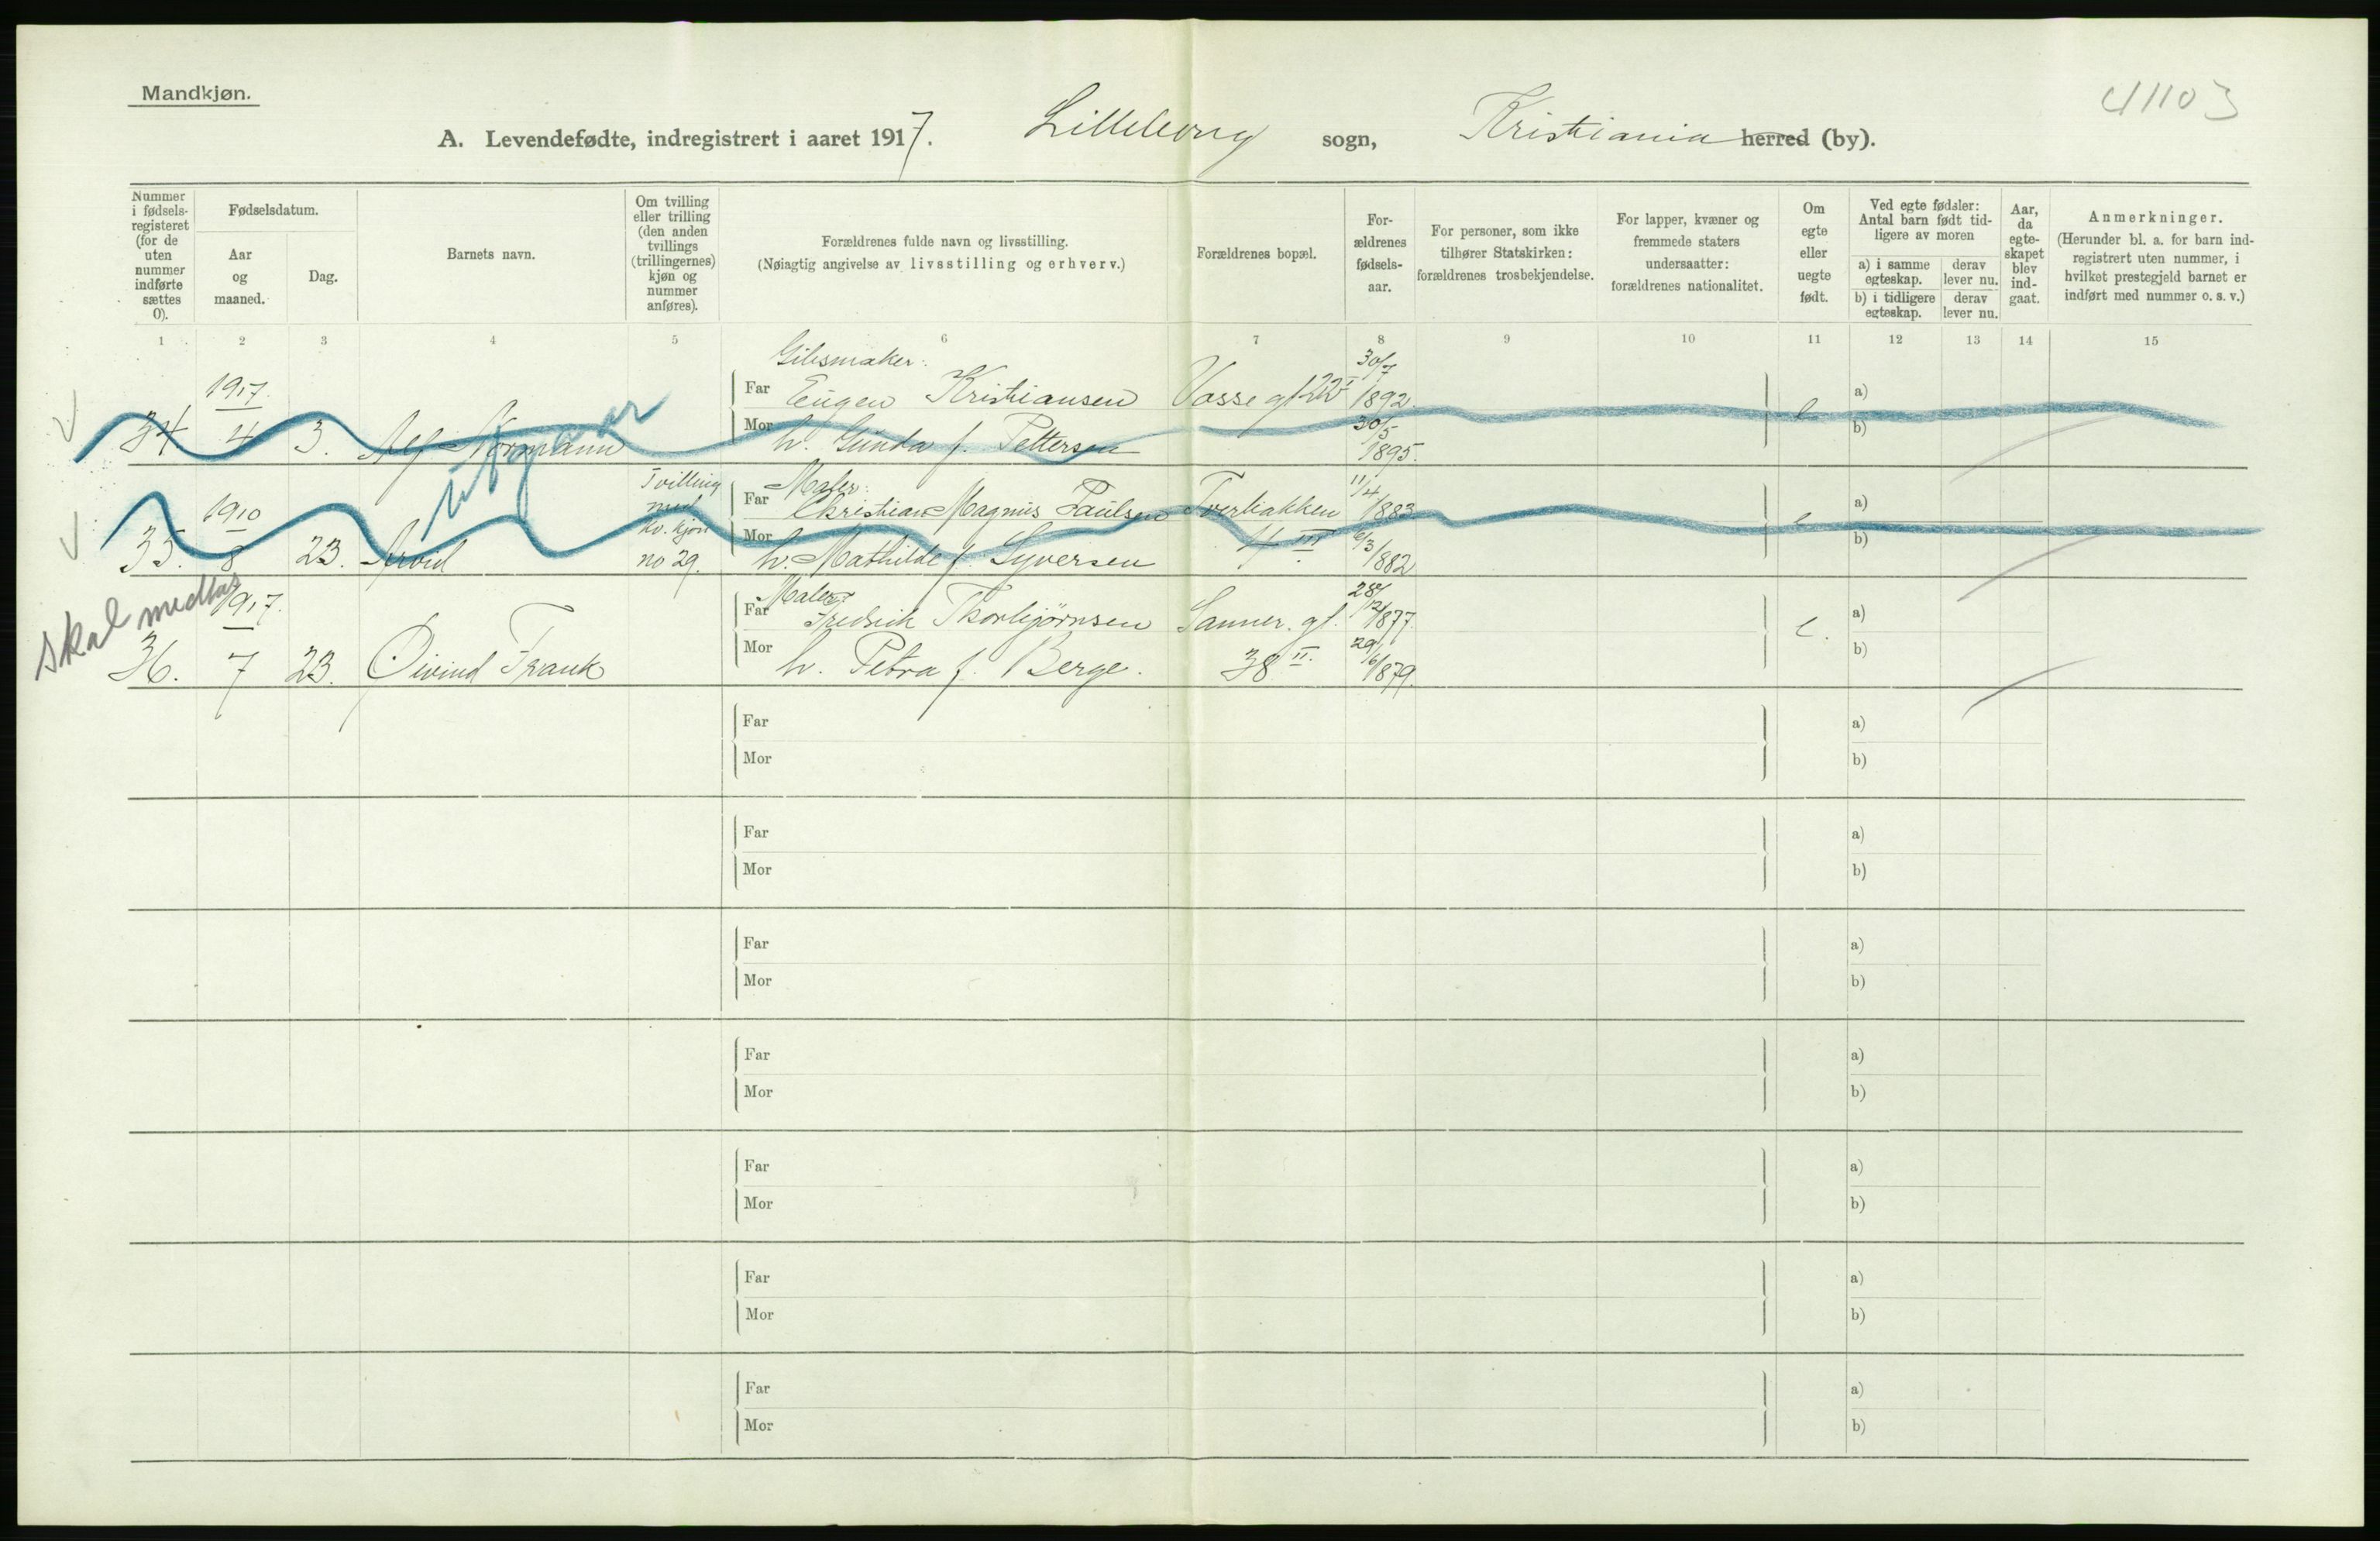 Mandkjøn.
41103
A. Levendefødte, indregistrert i aaret 1917. Lilleborg sogn, Kristiania herred (by).
Nummer i fødselsregisteret (for de uten nummer indførte sættes 0).
Fødselsdatum.
Aar og maaned.
Dag.
Barnets navn.
Om tvilling eller trilling (den anden tvillings (trillingernes) kjøn og nummer anføres).
Forældrenes fulde navn og livsstilling.
(Nøiagtig angivelse av livsstilling og erhverv.)
Forældrenes bopæl.
Forældrenes fødselsaar.
For personer, som ikke tilhører Statskirken: forældrenes trosbekjendelse.
For lapper, kvæner og fremmede staters undersaatter: forældrenes nationalitet.
Om egte eller uegte født.
Ved egte fødsler: Antal barn født tidligere av moren
a) i samme egteskap.
derav lever nu.
b) i tidligere egteskap.
derav lever nu.
Aar, da egteskapet blev indgaat.
Anmerkninger.
(Herunder bl. a. for barn indregistrert uten nummer, i hvilket prestegjeld barnet er indført med nummer o. s. v.)
1 2 3 4 5 6 7 8 9 10 11 12 13 14 15
Gibsmaker. 30/7
1917. Far Eugen Kristiansen Vossegt 22 I 1892. e a)
34. 4 3. Alf Normann Mor h. Gunda f. Pettersen 30/5 1895. b)
utgaar
Tvilling Maler. 11/4
1910 med Far Christian Magnus Paulsen Tverbakken 1883 e a)
kv. kjøn
35. 8 23. Arvid no 29. Mor h. Mathilde f. Syversen 4 III. 6/3 1882 b)
Skal medtas
1917. Maler 28/12
Far Fredrik Thorbjørnsen Sanner.gt. 1877. e. a)
36. 7 23. Øivind Frank Mor h. Petra f. Berge. 38 II. 29/6 1879. b)
Far a)
Mor b)
Far a)
Mor b)
Far a)
Mor b)
Far a)
Mor b)
Far a)
Mor b)
Far a)
Mor b)
Far a)
Mor b)